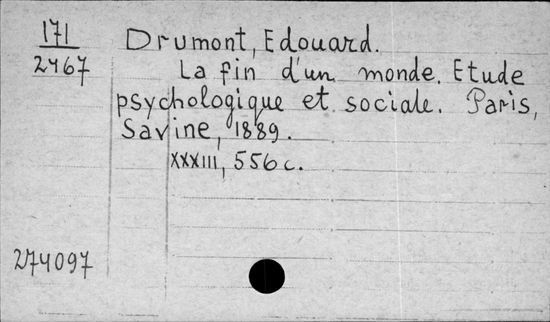 171
2467
Drumont, Edouard.
La fin d'un monde. Etude
psychologique et sociale. Paris,
Savine, 1889.
XXXIII, 556 c.
274097